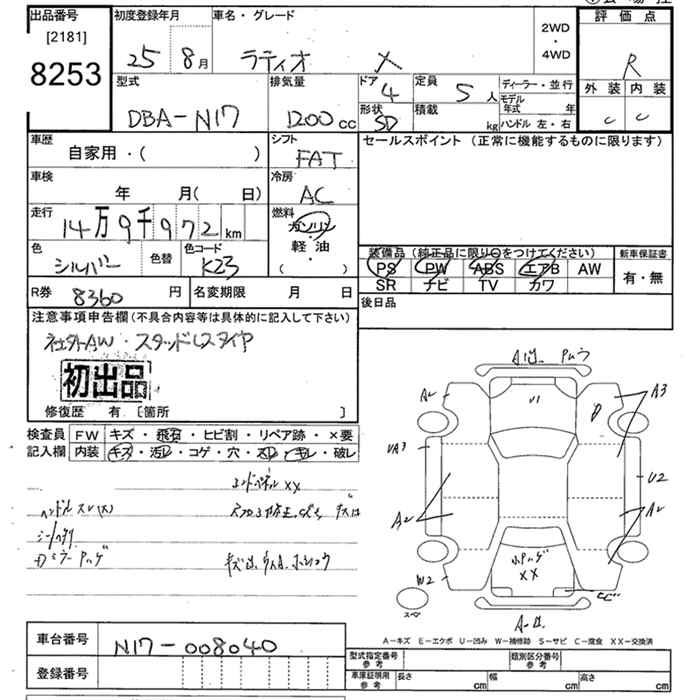 出品番号
[2181]
8253
初度登録年月
25 8月
車名・グレード
ラティオ X
2WD
・
4WD
評価点
R
外装 内装
C C
型式
DBA-N17
排気量
1200cc
ドア
4
形状
SD
定員
5人
積載
kg
ディーラー・並行
モデル年式 年
ハンドル 左・右
車歴
自家用・( )
シフト
FAT
セールスポイント (正常に機能するものに限ります)
車検
年 月( 日)
冷房
AC
走行
14万9千972km
燃料
ガソリン
軽・油
( )
色
シルバー
色替
色コード
K23
装備品 (純正品に限り○をつけてください)
PS PW ABS エアB AW
SR ナビ TV カワ
新車保証書
有・無
R券 8360円
名変期限 月 日
後日品
注意事項申告欄(不具合内容等は具体的に記入して下さい)
社外AW・スタッドレスタイヤ
初出品
修復歴 有 [箇所 ]
検査員
記入欄
FW キズ・飛石・ヒビ割・リペア跡・×要
内装 キズ・汚レ・コゲ・穴・スレ・キレ・破レ
エンドパネルXX
ハンドルスレ(大)
A3
A2
U1
UA3
U2
A2
A2
W2
XX
スペア
A-キズ E-エクボ U-凹み W-補修跡 S-サビ C-腐食 XX-交換済
車台番号
N17-008040
登録番号
型式指定番号
参考
類別区分番号
参考
車庫証明用
参考
長さ cm
幅 cm
高さ cm